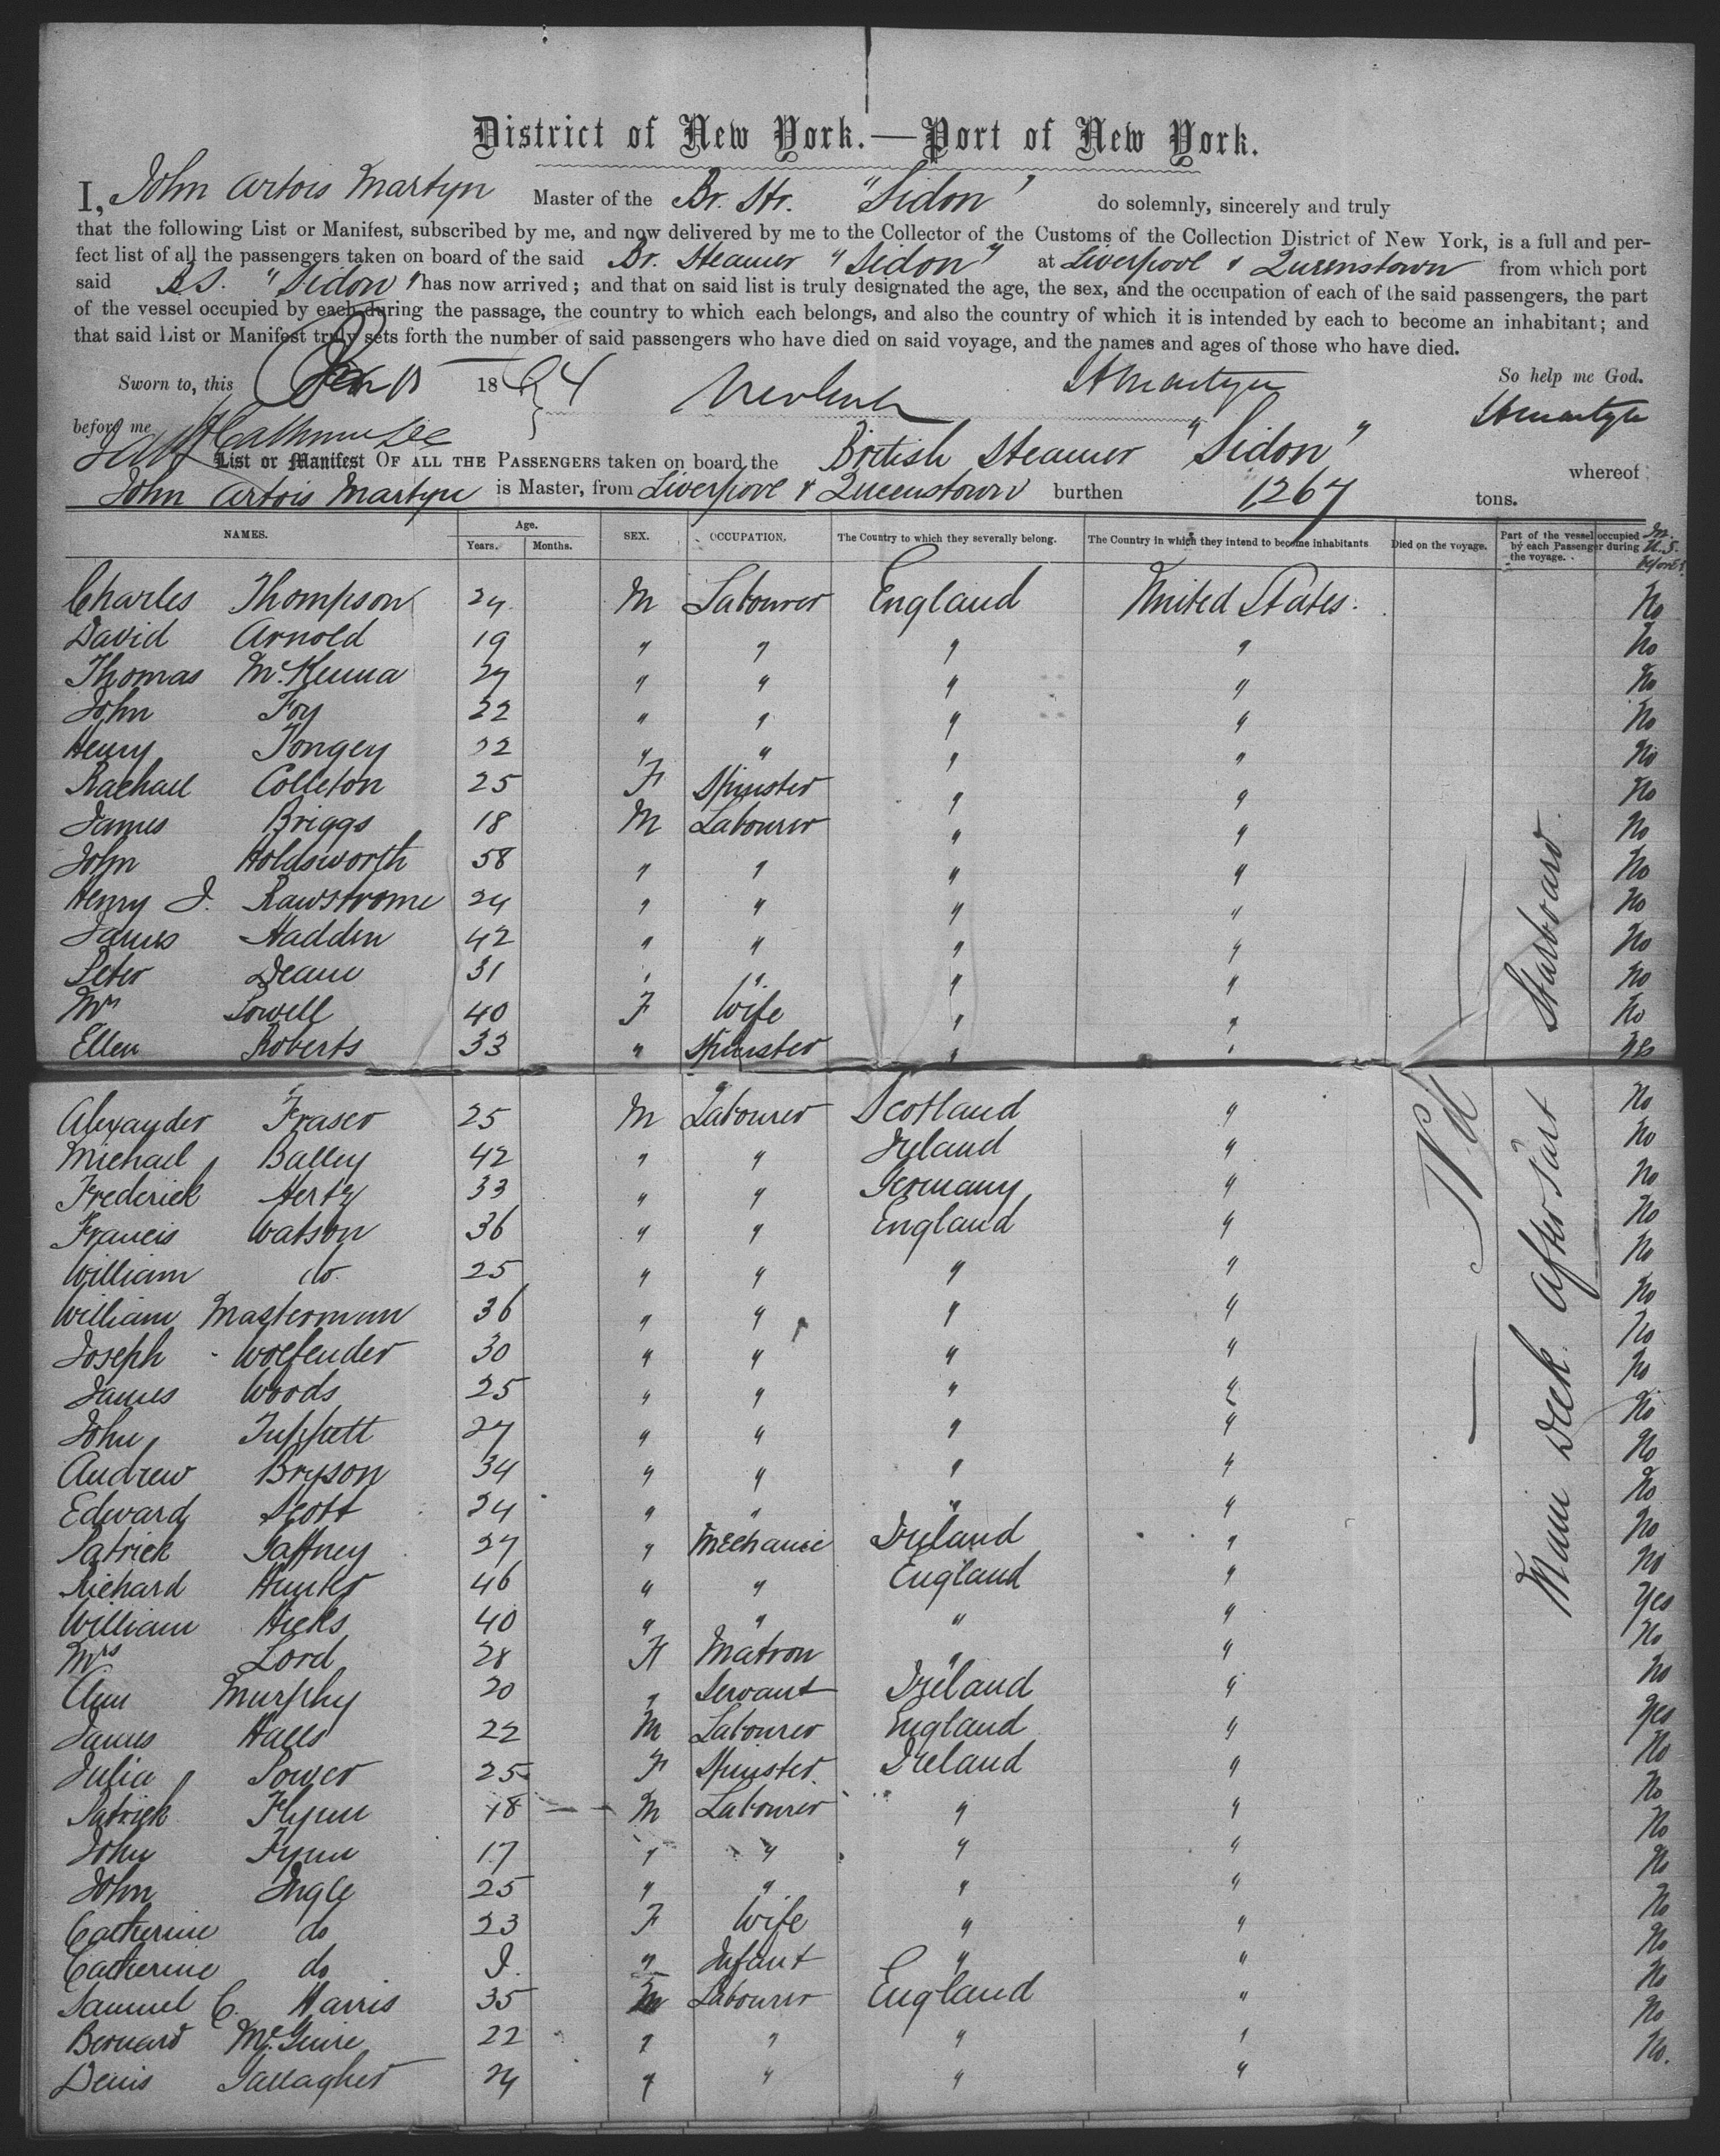 District of New York.—Port of New York.
I, John Artois Martyn Master of the Br. Str. "Sidon" do solemnly, sincerely and truly
that the following List or Manifest, subscribed by me, and now delivered by me to the Collector of the Customs of the Collection District of New York, is a full and per-
fect list of all the passengers taken on board of the said Br. Steamer "Sidon" at Liverpool & Queenstown from which port
said B.S. "Sidon" has now arrived; and that on said list is truly designated the age, the sex, and the occupation of each of the said passengers, the part
of the vessel occupied by each during the passage, the country to which each belongs, and also the country of which it is intended by each to become an inhabitant; and
that said List or Manifest truly sets forth the number of said passengers who have died on said voyage, and the names and ages of those who have died.
Sworn to, this 15 1864 JAMartyn So help me God.
before me JAMartyn
List or Manifest OF ALL THE PASSENGERS taken on board the British Steamer "Sidon" whereof
John Artois Martyn is Master, from Liverpool & Queenstown burthen 1267 tons.
NAMES. Age. Years. Months. SEX. OCCUPATION. The Country to which they severally belong. The Country in which they intend to become inhabitants Died on the voyage. Part of the vessel occupied by each Passenger during the voyage. In U.S. before?
Charles Thompson 24 M Labourer England United States. No
David Arnold 19 " " " " No
Thomas McKenna 27 " " " " No
John Foy 22 " " " " No
Henry Tongey 22 " " " " No
Rachael Colleton 25 F Spinster " " No
James Briggs 18 M Labourer " " No
John Holdsworth 58 " " " " No
Henry J. Rawstrome 24 " " " " No
James Hadden 42 " " " " No
Peter Deane 31 " " " " No
Mrs Powell 40 F Wife " " No
Ellen Roberts 33 " Spinster " "
Alexander Fraser 25 M Labourer Scotland " No
Michael Balley 42 " " Ireland " No
Frederick Hertz 33 " " Germany " No
Francis Watson 36 " " England " No
William do 25 " " " " No
William Masterman 36 " " " " No
Joseph Wolfender 30 " " " " No
James Woods 25 " " " " No
John Tuppett 27 " " " " No
Andrew Bryson 34 " " " " No
Edward Scott 24 " " " " No
Patrick Gaffney 27 " Mechanic Ireland " No
Richard Hunks 46 " " England " No
William Hicks 40 " " " " Yes
Mrs Lord 28 F Matron " " No
Ann Murphy 20 " Servant Ireland " No
James Halls 22 M Labourer England " Yes
Julia Power 25 F Spinster Ireland " No
Patrick Flynn 18 M Labourer " " No
John Fynn 17 " " " " No
John Ingle 25 " " " " No
Catherine do 23 F Wife " " No
Catherine do I. " Infant " " No
Samuel C. Harris 35 M Labourer England " No
Bernard McGuire 22 " " " " No
Denis Gallagher 24 " " " " No.
Main Deck After Part Starboard